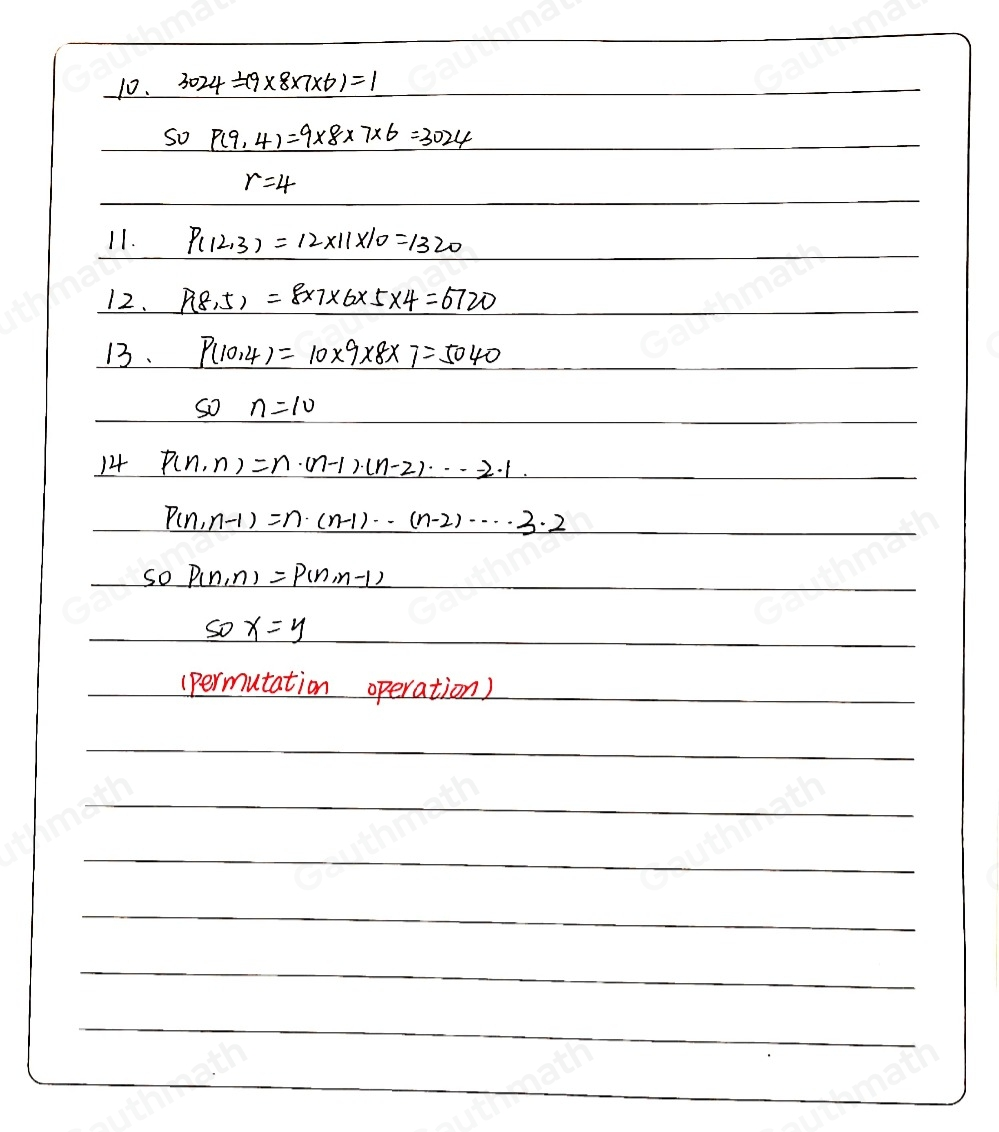 10. 3024÷(9×8×7×6)=1
so P(9,4)=9×8×7×6=3024
r=4
11. P(12,3)=12×11×10=1320
12. P(8,5)=8×7×6×5×4=6720
13. P(10,4)=10×9×8×7=5040
so n=10
14 P(n,n)=n·(n-1)·(n-2)·--2·1.
P(n,n-1)=n·(n-1)··(n-2)----3·2
so P(n,n)=P(n,n-1)
so x=y
(permutation operation)